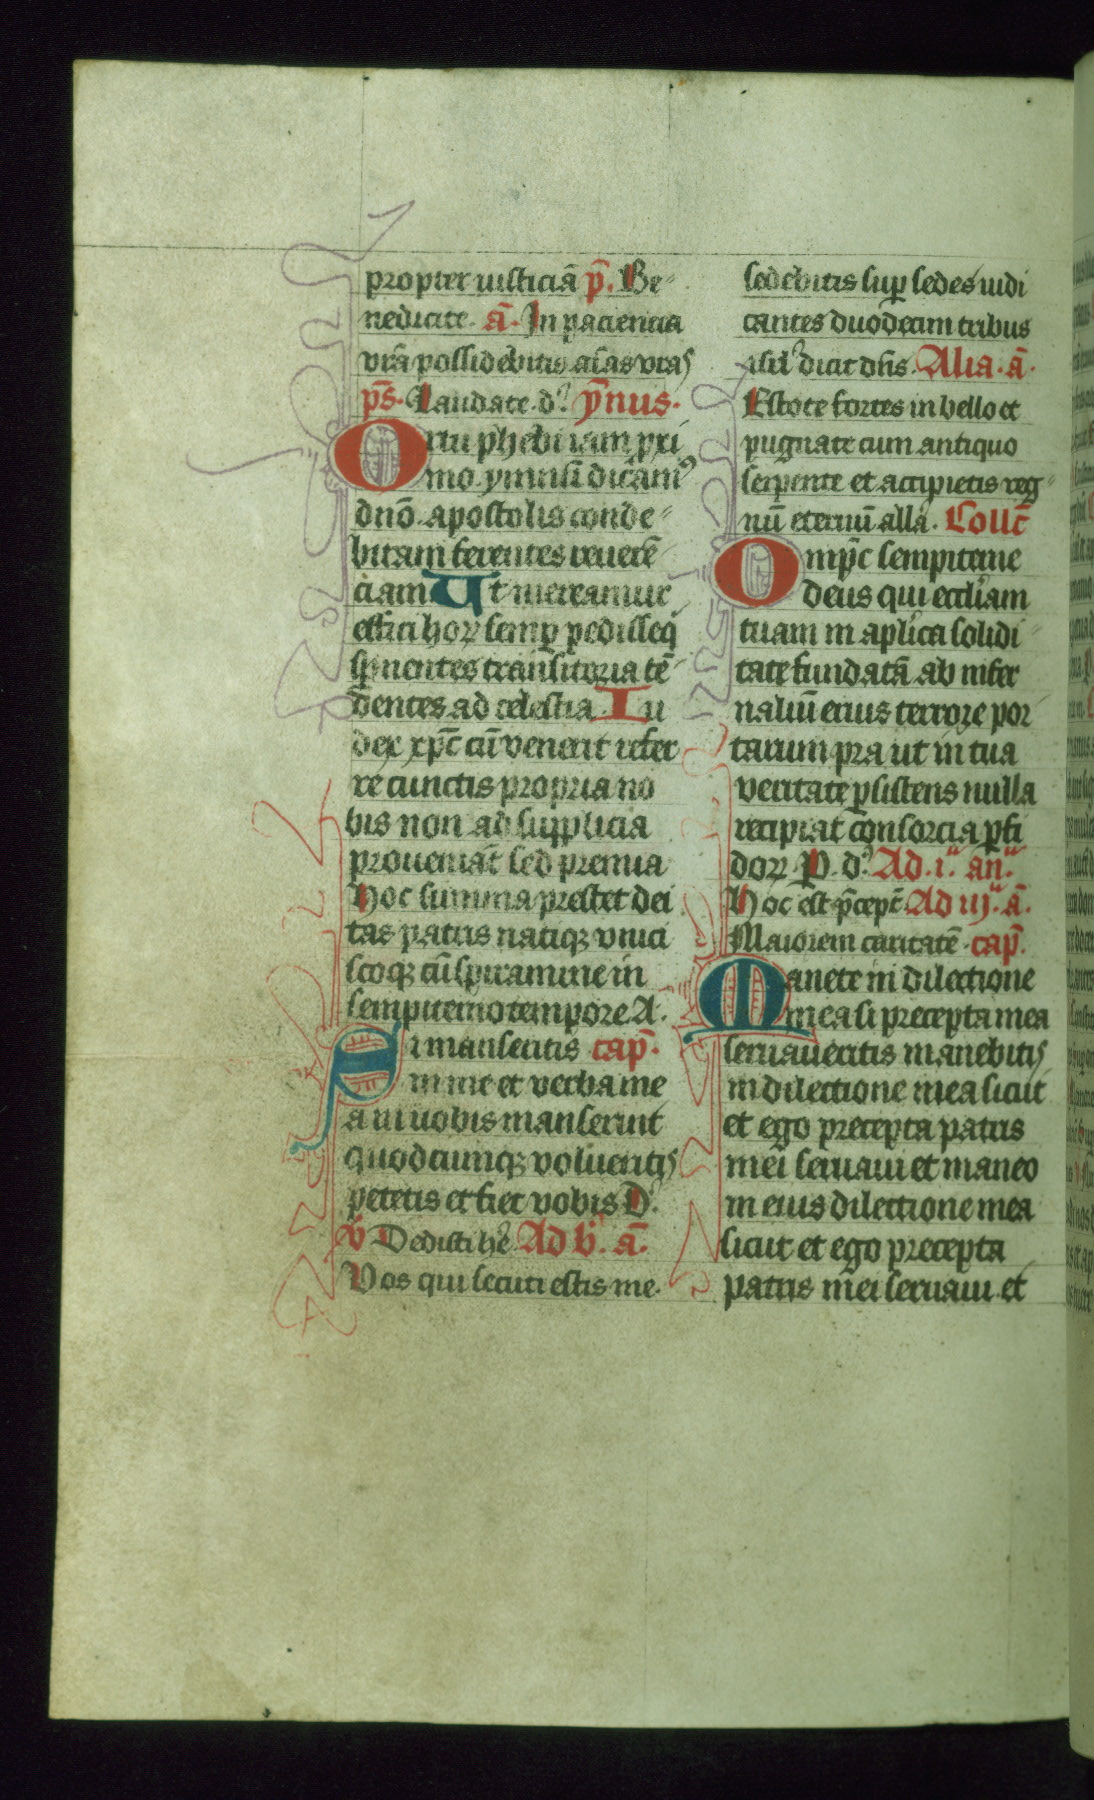 propter iusticiā p̄. Be-
nedicite. ā. In paciencia
vr̄a possidebitis aīas vr̄as
ps̄. Laudate. d'. ȳnus.
Ortu phebi iam pxi
mo ymnisū dicam⁹
dnō apostolis conde-
bitam ferentes reuerē
ciam Ut mereamur
effici hoꝝ semꝑ pedisseq̄
spnentes transitoria tē-
dentes ad celestia. Iu
dex xp̄c cū venerit refer
re cunctis propria no
bis non ad supplicia
proueniāt sed premia
Hoc summa prestet dei
tas patris natiqꝫ vnici
scōqꝫ cū spiramine in
sempiterno tempore A.
Si manseritis cap̄.
in me et verba me
a in uobis manserint
quodcumqꝫ volueritis
petetis et fiet vobis D'.
v̄ Dedisti he' Ad b'. ā.
Vos qui secuti estis me.
sedebitis suꝑ sedes iudi
cantes duodecim tribus
isrl' dicit dn̄s. Alia. ā.
Estote fortes in bello et
pugnate cum antiquo
serpente et accipietis reg-
nū eternū all̄a. Coll̄c
Omp̄c sempiterne
deus qui eccl̄iam
tuam in apl̄ica solidi
tate fundatā ab infer
naliū eruis terrore por
tarum pr̄a ut in tua
veritate ꝑsistens nulla
recipiat consorcia ꝑfi
doꝝ. P. d'. Ad .i.ᵃ an.ᵃ
Hoc est p̄cept̄ Ad iij.ᵃ ā.
Maiorem caritatē. cap̄.
Manete in dilectione
mea si precepta mea
seruaueritis manebitis
in dilectione mea sicut
et ego precepta patris
mei seruaui et maneo
in eius dilectione mea
sicut et ego precepta
patris mei seruaui et